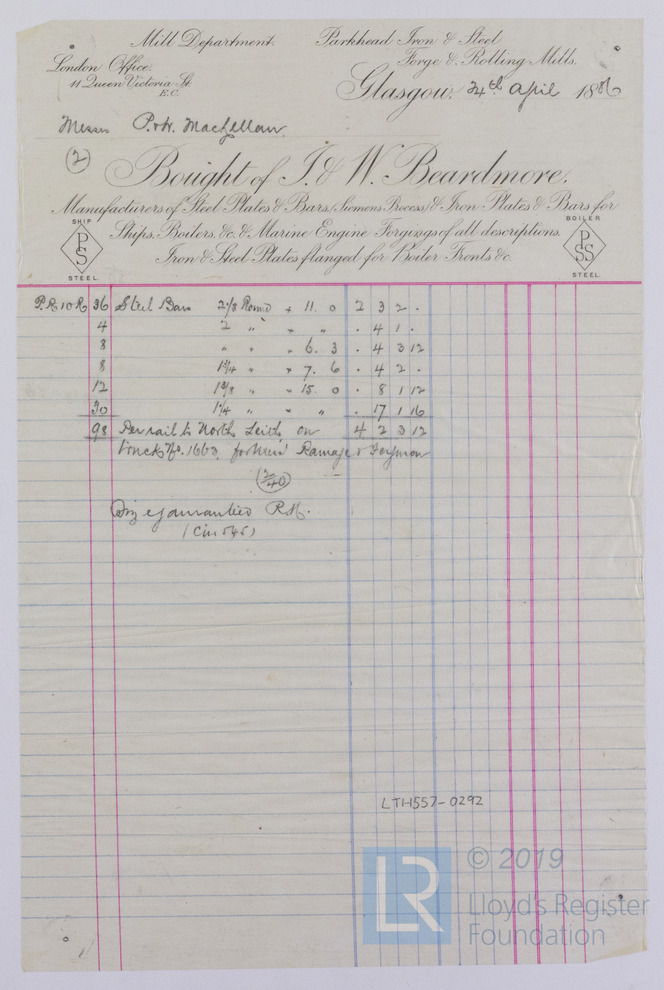 Mill Department. Parkhead Iron & Steel
London Office. Forge & Rolling Mills.
11 Queen Victoria St.
E.C.
Glasgow. 24th April 1886
Messrs P. & W. MacLellan.
(2)
Bought of I. & W. Beardmore.
Manufacturers of Steel Plates & Bars, (Siemens Process) & Iron Plates & Bars for
Ships, Boilers, &c. & Marine Engine Forgings of all descriptions.
Iron & Steel Plates flanged for Boiler Fronts &c.
SHIP
PS
STEEL.
BOILER
PSS
STEEL.
P.R 10 R 36 Steel Bars 2 1/8 Round × 11. 0 2 3 2 .
4 2 " " " . 4 1 .
8 " " " 6. 3 . 4 3 12
8 1 3/4 " " 7. 6 . 4 2 .
12 1 3/8 " " 15. 0 . 8 1 12
30 1 1/4 " " " . 17 1 16
98 Per rail to North Leith on 4 2 3 12
Truck No. 1663, for Messrs Ramage & Ferguson
(2/40)
guarantied R.H.
(Cir 545)
LTH557-0292
LR
© 2019
Lloyd's Register
Foundation